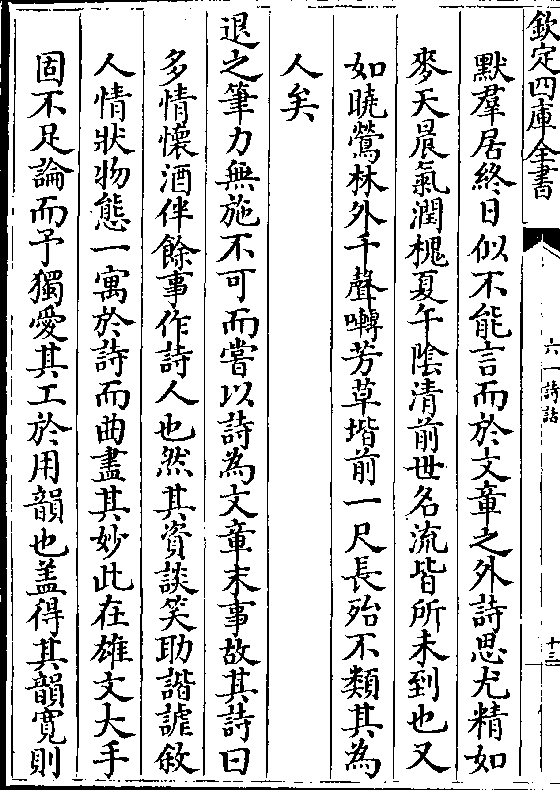 欽定四庫全書
六一詩話
十三
默羣居終日似不能言而於文章之外詩思尤精如
麥天晨氣潤槐夏午陰清前世名流皆所未到也又
如曉鶯林外千聲囀芳草堦前一尺長殆不類其為
人矣
退之筆力無施不可而嘗以詩為文章末事故其詩曰
多情懷酒伴餘事作詩人也然其資談笑助諧謔敘
人情狀物態一寓於詩而曲盡其妙此在雄文大手
固不足論而予獨愛其工於用韻也蓋得其韻寬則